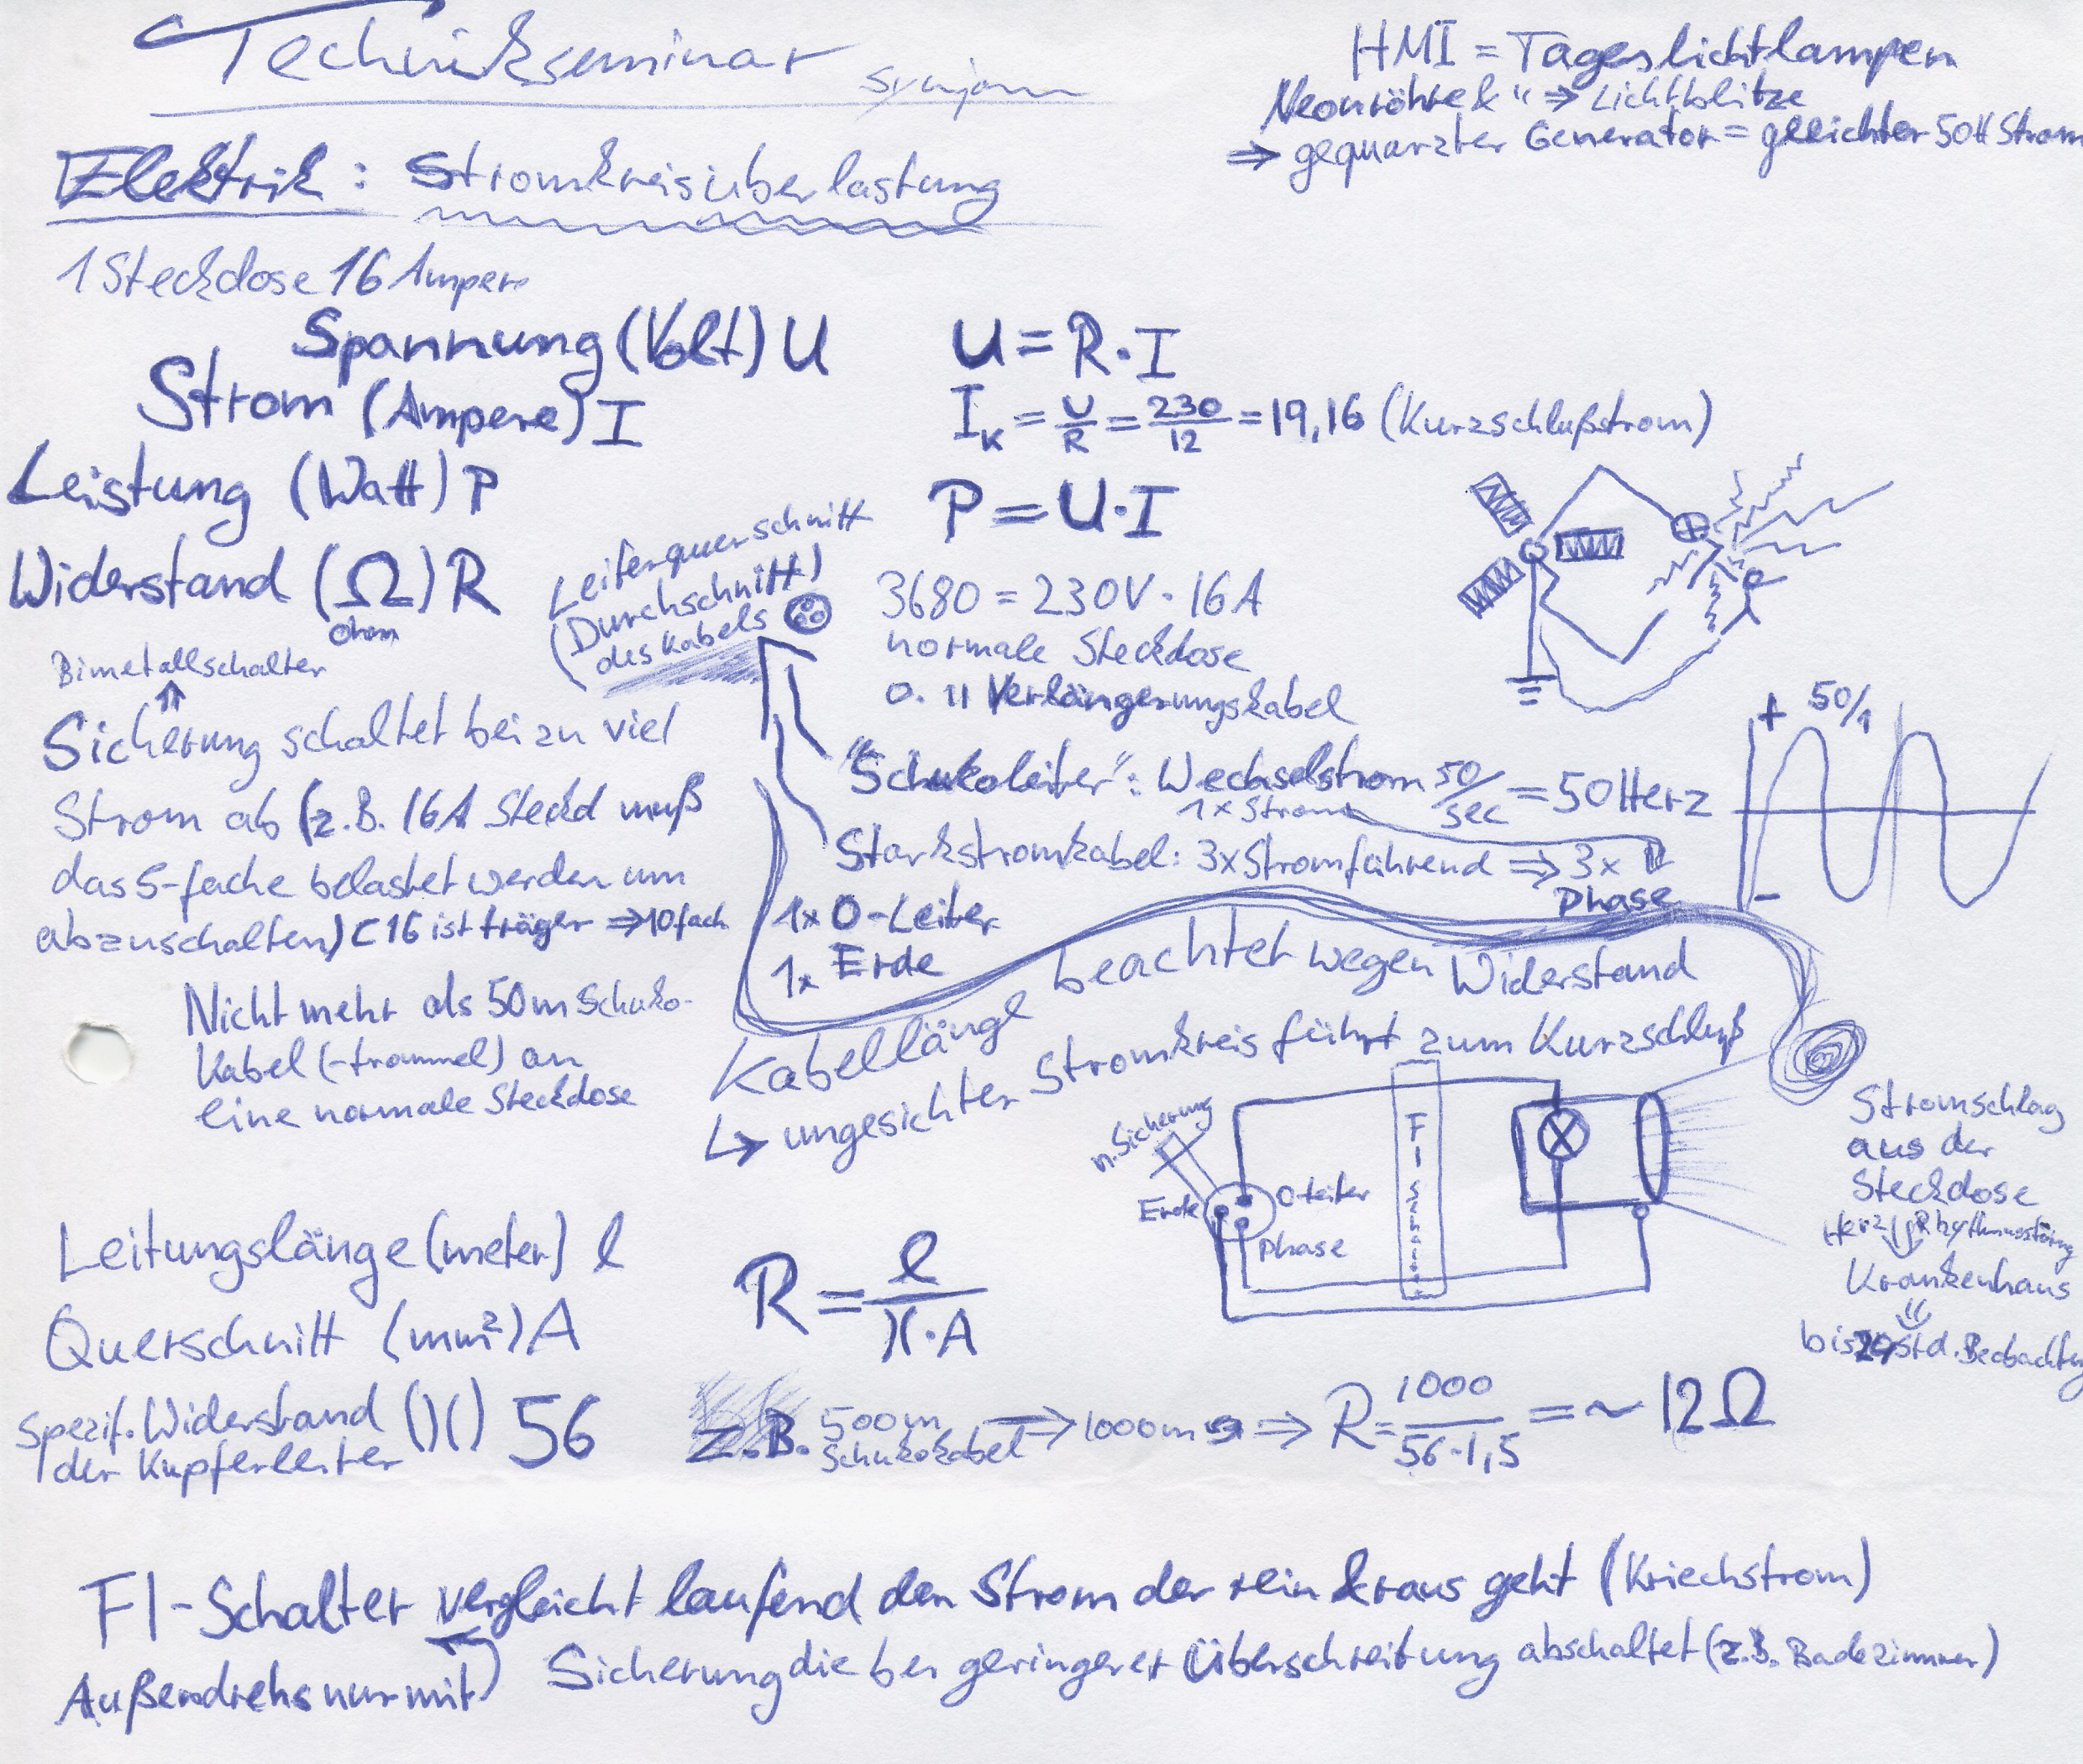 Technikseminar
HMI = Tageslichtlampen
Neonröhre & " ⇒ Lichtblitze
⇒ gequarzter Generator = geeichter 50H Strom
Elektrik: Stromkreisüberlastung
1 Steckdose 16 Ampere
Spannung (Volt) U
Strom (Ampere) I
Leistung (Watt) P
Widerstand (Ω) R
Ohm
U = R · I
I_K = U/R = 230/12 = 19,16 (Kurzschlußstrom)
P = U · I
3680 = 230V · 16A
normale Steckdose
o. 11 Verlängerungskabel
Leiterquerschnitt
(Durchschnitt)
des Kabels
Bimetallschalter
⇑
Sicherung schaltet bei zu viel
Strom ab (z.B. 16A Steckd muß
das 5-fache belastet werden um
abzuschalten) C16 ist träger ⇒ 10fach
Nicht mehr als 50m Schuko-
Kabel (-trommel) an
eine normale Steckdose
"Schukoleiter": Wechselstrom 50/sec = 50Herz
1x Strom
Starkstromkabel: 3x Stromführend ⇒ 3x
Phase
1x 0-Leiter
1x Erde
+ 50/1
-
Kabellänge beachtet wegen Widerstand
↳ ungesichter Stromkreis führt zum Kurzschluß
n. Sicherung
Erde
0-Leiter
Phase
FI
Stromschlag
aus der
Steckdose
Krankenhaus
⇓
bis 24 Std. Beobachtung
Leitungslänge (meter) l
Querschnitt (mm²) A
spezif. Widerstand (ϰ) 56
der Kupferleiter
R = l/ϰ·A
z.B. 500m ⇒ 1000m ⇒ R = 1000/56·1,5 = ~ 12Ω
Schukokabel
FI-Schalter vergleicht laufend den Strom der rein & raus geht (Kriechstrom)
Außendrehs nur mit) Sicherung die bei geringerer Überschreitung abschaltet (z.B. Badezimmer)